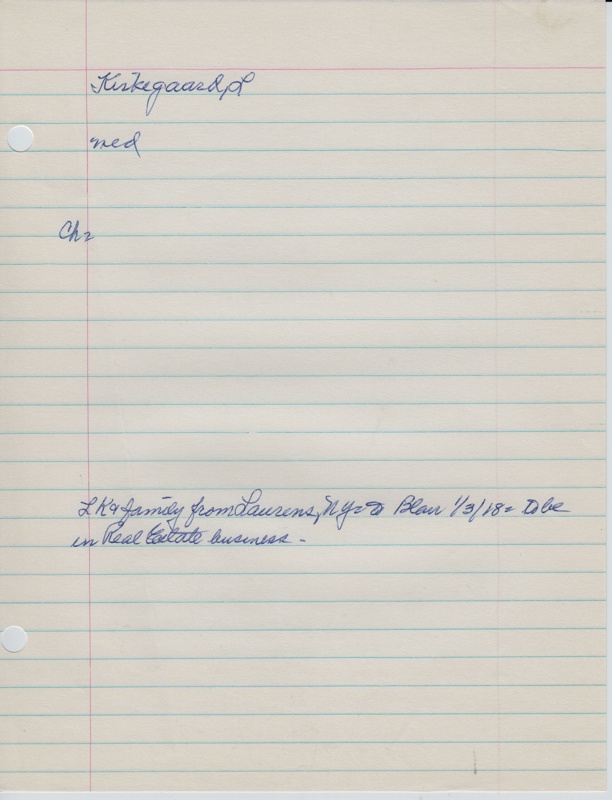 Kirkegaard, L
med
Ch=
LK & family from Laurens, NY = to Blair 1/3/18 = to be
in Real Estate business -